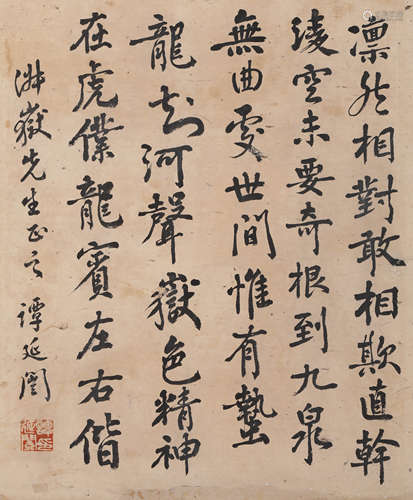 凛然相對敢相欺直幹
凌空未要奇根到九泉
無曲處世間惟有蟄
龍知河聲嶽色精神
在虎僕龍賓左右偕
淋嶽先生正之 譚延闓